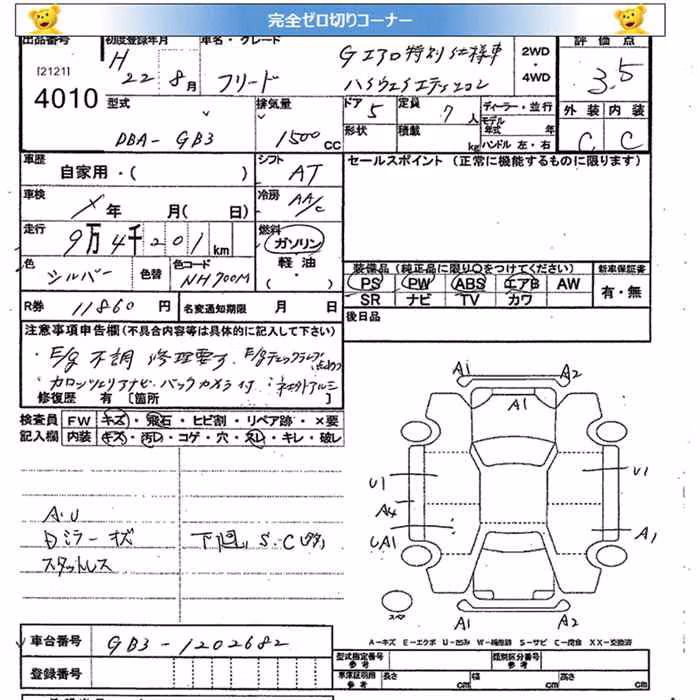 完全ゼロ切りコーナー
出品番号 初度登録年月 車名・グレード 評価点
[2121] 4010
H 22 8月 フリード Gエアロ特別仕様車 ハイウェイエディション 2WD・4WD 3.5
型式 排気量 ドア 5 定員 7人 ディーラー・並行 外装 内装
DBA- GB3 1500cc 形状 積載 kg モデル年式 年 ハンドル 左・右 C C
車歴 自家用・( ) シフト AT セールスポイント (正常に機能するものに限ります)
車検 年 月( 日) 冷房 AA/C
走行 9万4千201km 燃料 ガソリン
色 シルバー 色替 色コード NH700M 軽油・( )
装備品 (純正品に限り○をつけてください) 新車保証書
PS PW ABS エアB AW 有・無
SR ナビ TV カワ
R券 11860円 名変通知期限 月 日 後日品
注意事項申告欄 (不具合内容等は具体的に記入して下さい)
E/g 不調 修理要す E/gチェックランプ
カロッツェリアナビ バックカメラ付
修復歴 有 [箇所 ]
検査員 FW キズ・飛石・ヒビ割・リペア跡・×要
記入欄 内装 キズ・汚レ・コゲ・穴・スレ・キレ・破レ
A1 A2
A1
U1 U1
A4
UA1 A1
A.U
Dミラーキズ 下回り S.C
スタットレス
スペア
A1 A2
A-キズ E-エクボ U-凹み W-補修跡 S-サビ C-腐食 XX-交換済
車台番号 GB3-1202682
型式指定番号 参考 類別区分番号 参考
登録番号 車庫証明用 参考 長さ cm 幅 cm 高さ cm